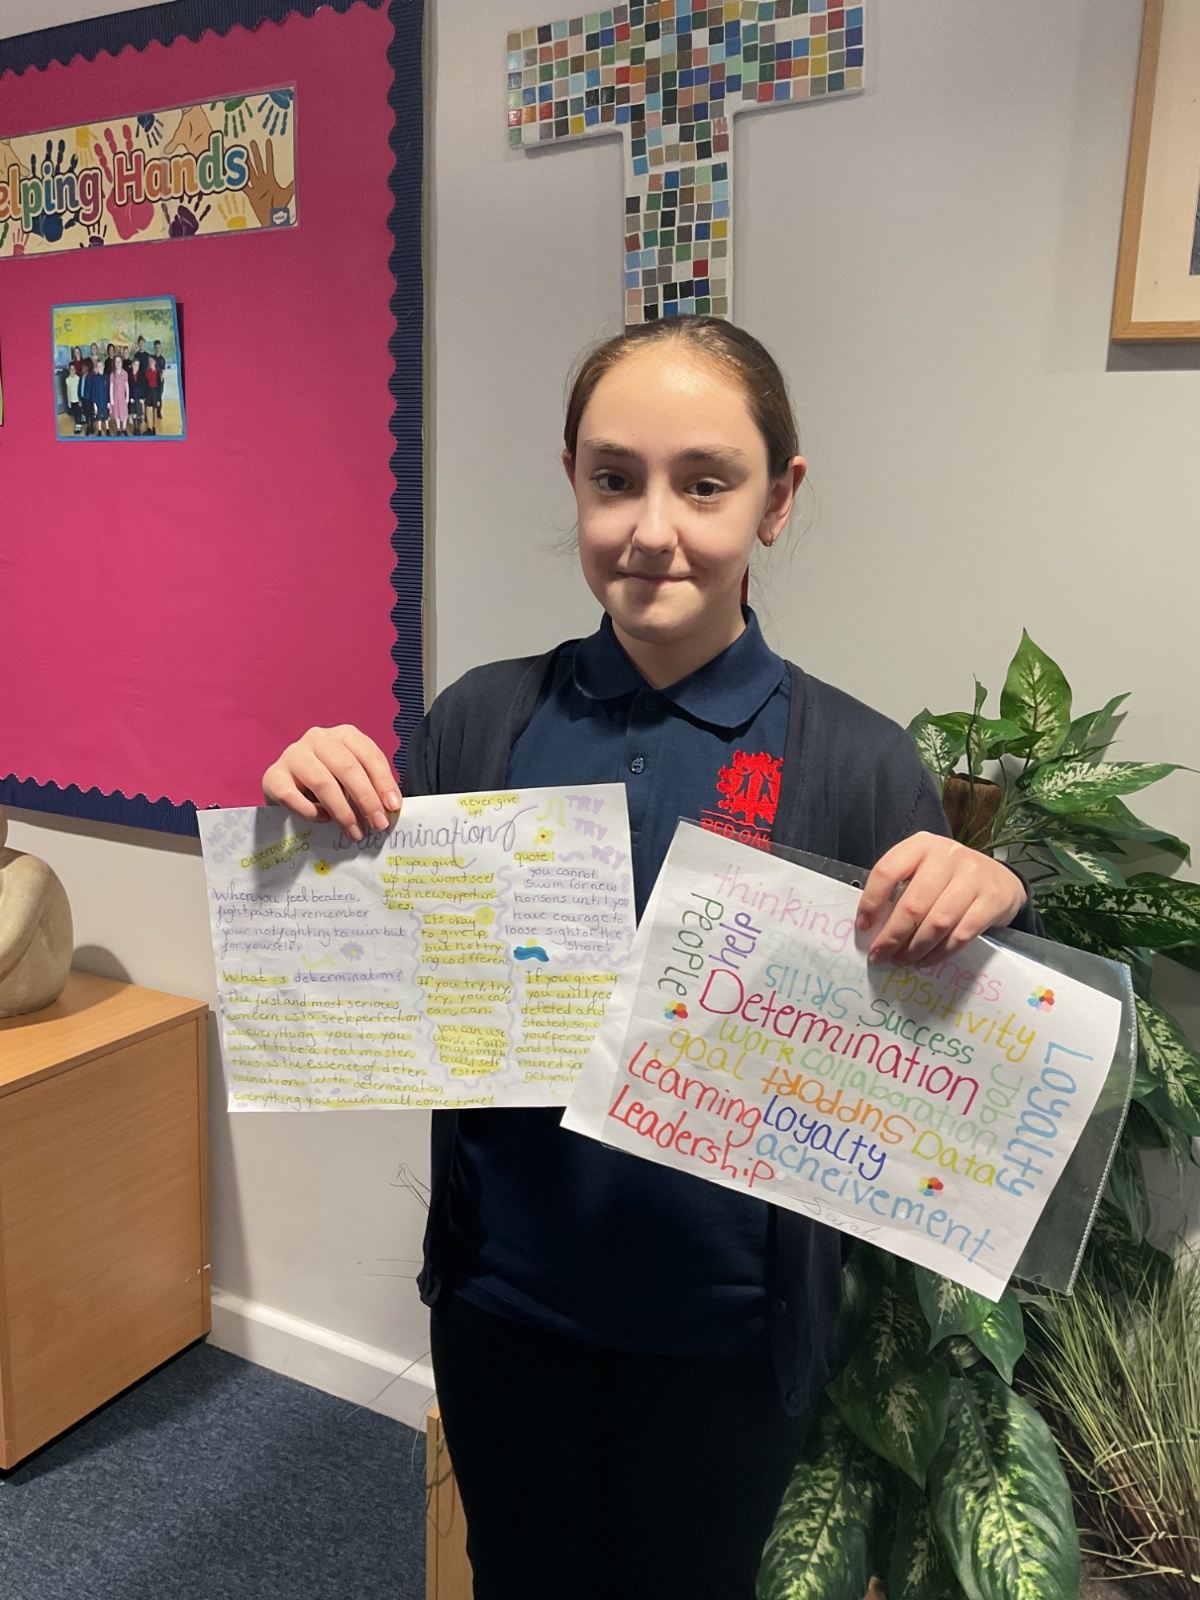 Helping Hands
RED OAK
never give
up!
Determination
TRY
TRY
TRY
NEVER
GIVE
Determination
is key
When you feel beaten,
fight past and remember
your not fighting to win but
for yourself.
What is determination?
The first and most serious
concern is to seek perfection
in everything you do, you
want to be a real master.
this is the essence of deter-
mination. With determination
everything you wish will come true!
if you give
up you wont see
find new opportun
ies.
Its okay
to give up,
but not try
ing is different
If you try, try,
try, you can
can, can.
you can use
words of affir
mations to
build self
esteem.
quote:
you cannot
swim for new
horisons until you
have courage to
loose sight of the
shore!
If you give up
you will feel
defeted and
and
get your
thinking
people
help
Skills
Positivity
Success
Determination
work collaboration
goal
support
Job
Loyalty
Learning
Loyalty
Data
Leadership
acheivement
Sarah